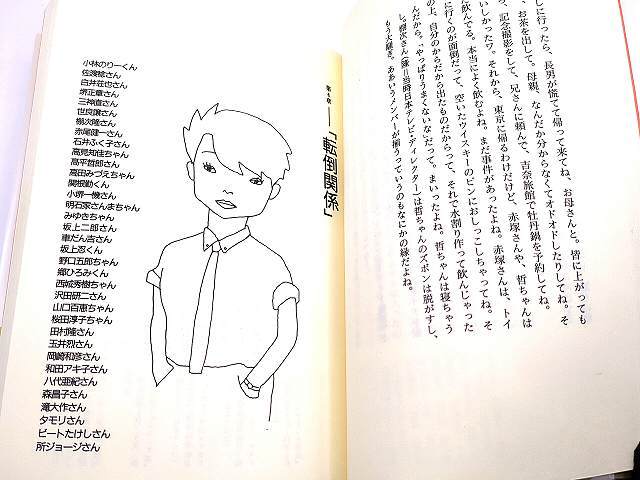 しに行ったら、長男が慌てて帰って来てね、お母さんと。皆に上がっても
、お茶を出して。母親、なんだか分からなくてオドオドしたりしてね。そ
、記念撮影をして、兄さんに頼んで、吉奈旅館で牡丹鍋を予約してね。
いしかったワ。それから、東京に帰るわけだけど、赤塚さんや、哲ちゃんは
飲んでる。本当によく飲むよね。まだ事件があったよね。赤塚さんは、トイ
に行くのが面倒だって、空いたウイスキーのビンにおしっこしちゃってね。そ
の上、自分のからだから出たものだからって、それで水割り作って飲んじゃった
んだから。「やっぱりうまくないな」だって。まいったよね。哲ちゃんは寝ちゃう
し。棚次さん(隆=当時日本テレビ・ディレクター)は哲ちゃんのズボンは脱がすし、
もう大騒ぎ。ああいうメンバーが揃うっていうのもなにかの縁だよね。
第4章──「転倒関係」
小林のりーくん
佐渡稔さん
白井荘也さん
堺正章さん
三神直さん
世良譲さん
棚次隆さん
赤尾健一さん
石井ふく子さん
高見知佳ちゃん
高平哲郎さん
高田みづえちゃん
関根勤くん
小堺一機さん
明石家さんまちゃん
みゆきちゃん
坂上二郎さん
車だん吉さん
坂上忍くん
野口五郎ちゃん
郷ひろみくん
西城秀樹ちゃん
沢田研二さん
山口百恵ちゃん
桜田淳子ちゃん
田村隆さん
玉井烈さん
岡崎和彦さん
和田アキ子さん
八代亜紀さん
森昌子さん
滝大作さん
タモリさん
ビートたけしさん
所ジョージさん